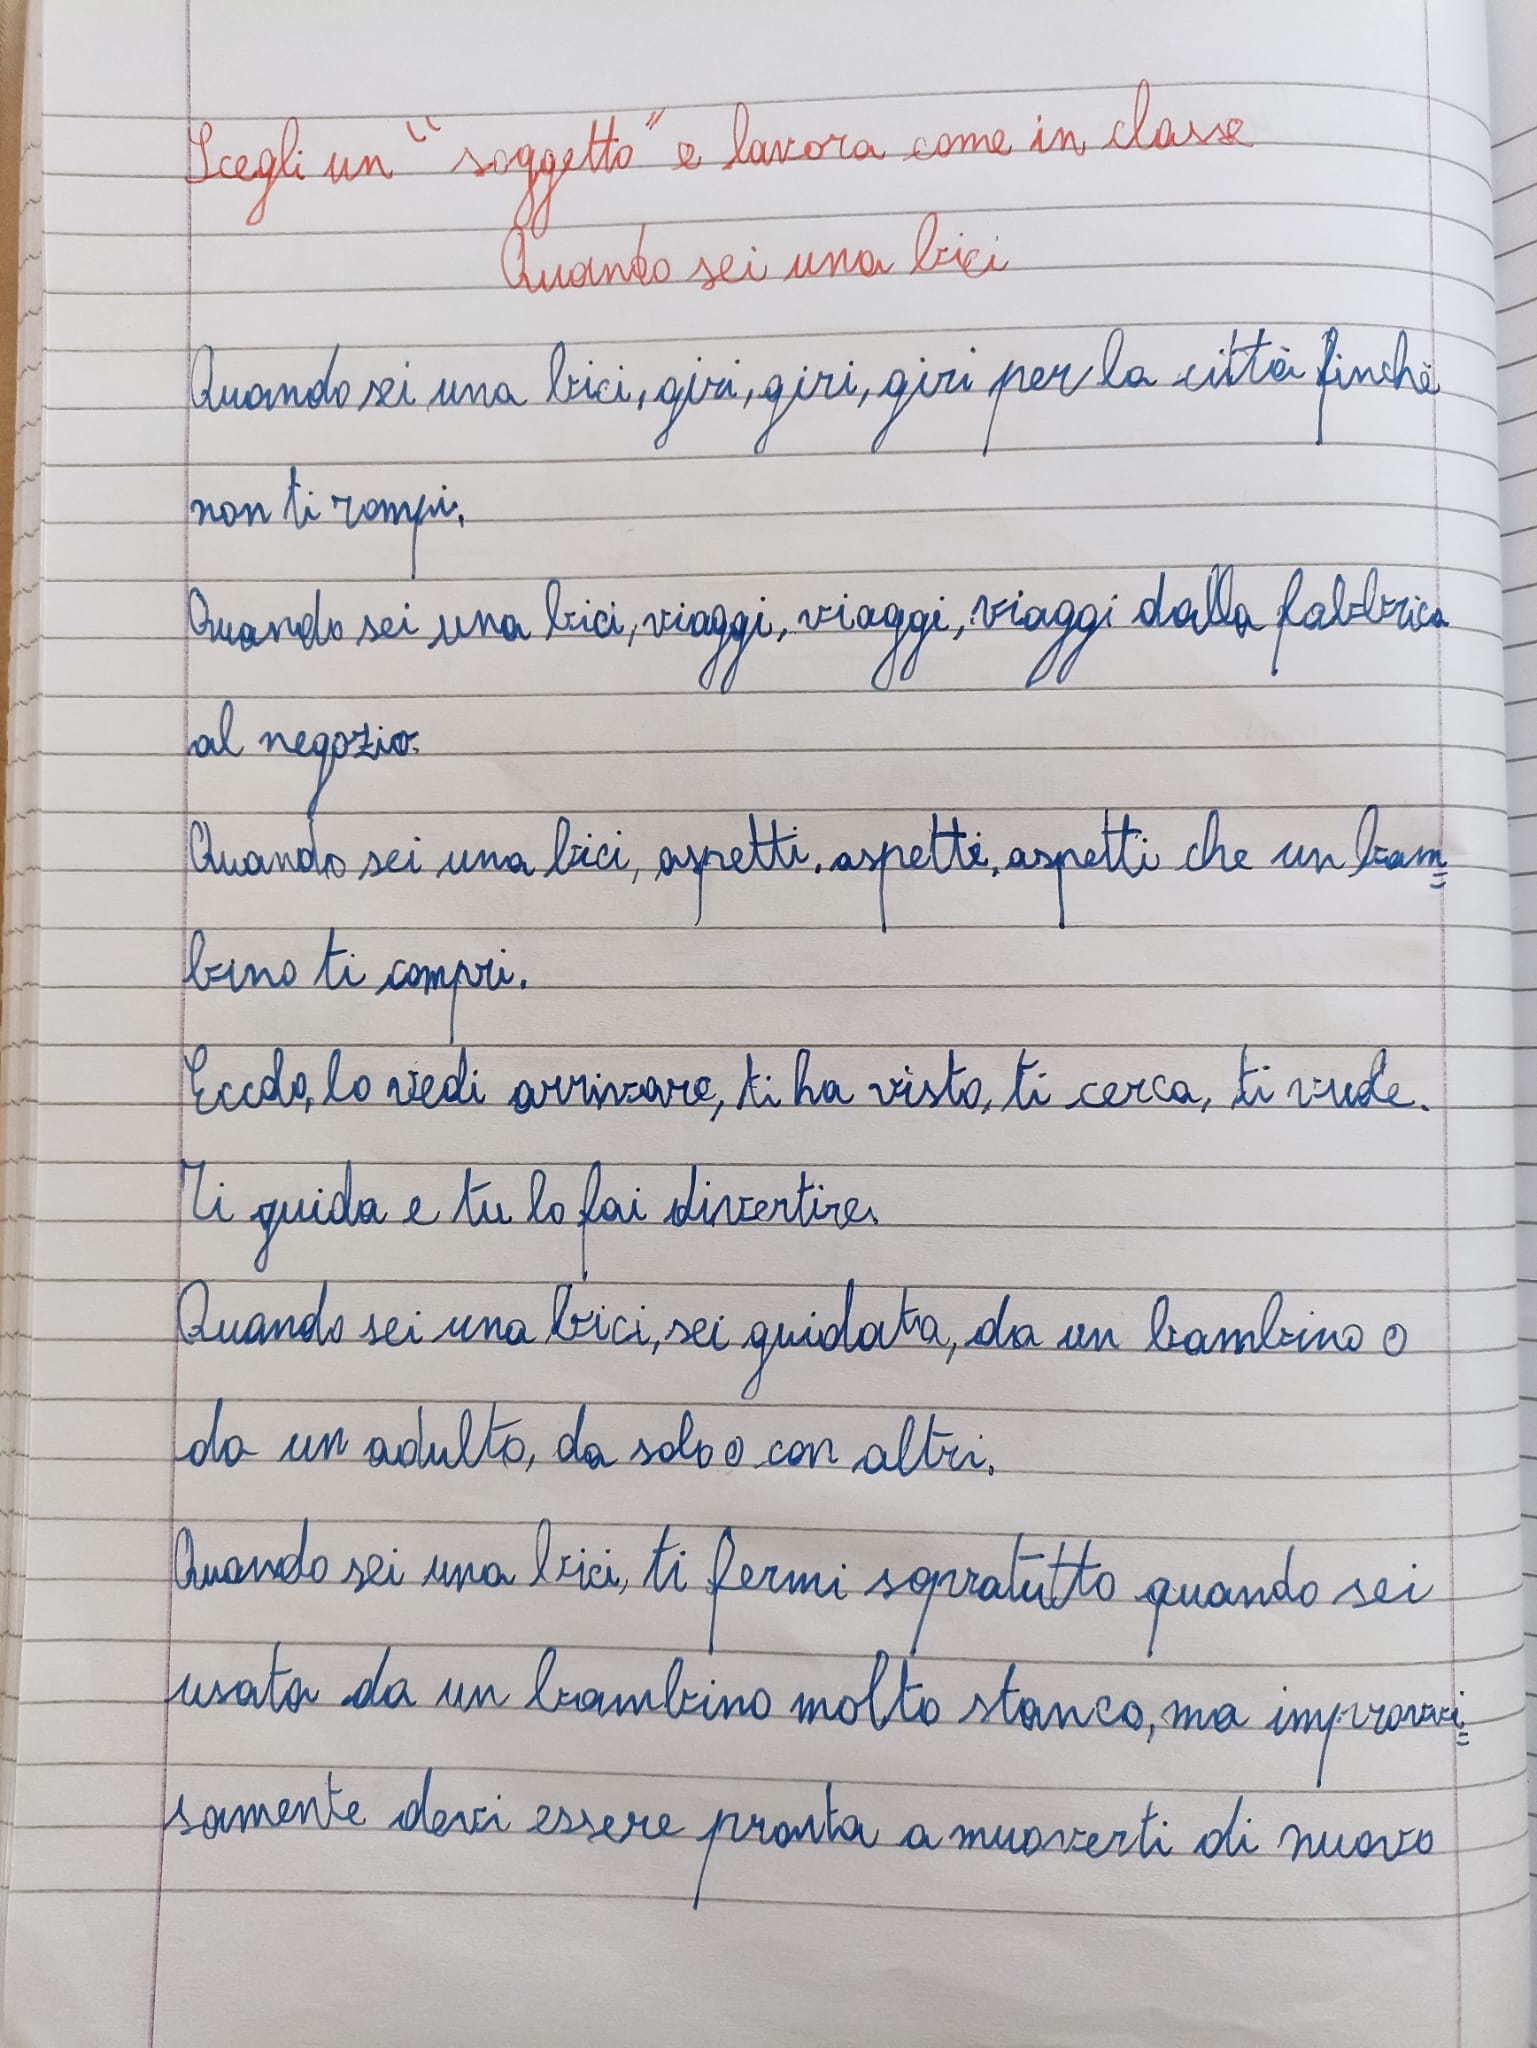 Scegli un "soggetto" e lavora come in classe
Quando sei una bici
Quando sei una bici, giri, giri, giri per la città finchè
non ti rompi.
Quando sei una bici, viaggi, viaggi, viaggi dalla fabbrica
al negozio.
Quando sei una bici, aspetti, aspetti, aspetti che un bam=
bino ti compri.
Eccolo, lo vedi arrivare, ti ha visto, ti cerca, ti vude.
Ti guida e tu lo fai divertire.
Quando sei una bici, sei guidata, da un bambino o
da un adulto, da solo o con altri.
Quando sei una bici, ti fermi sopratutto quando sei
usata da un bambino molto stanco, ma improvvi=
samente devi essere pronta a muoverti di nuovo